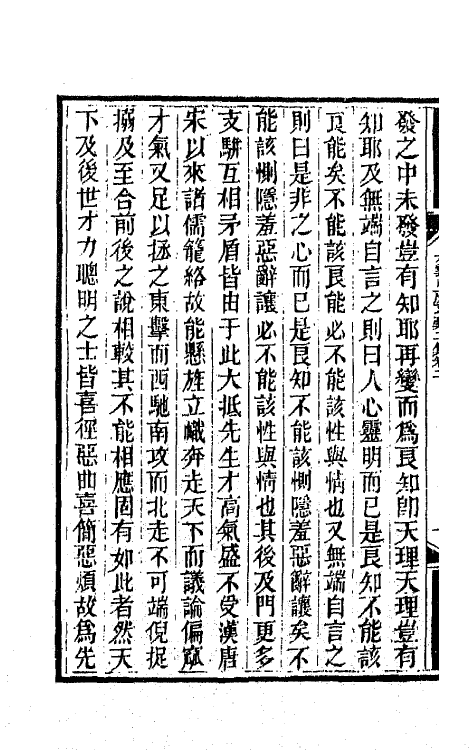 發之中未發豈有知耶再變而為良知卽天理天理豈有
知耶及無端自言之則曰人心靈明而已是良知不能該
良能矣不能該良能必不能該性與情也又無端自言之
則曰是非之心而已是良知不能該惻隱羞惡辭讓矣不
能該惻隱羞惡辭讓必不能該性與情也其後及門更多
支騈互相矛盾皆由于此大抵先生才高氣盛不受漢唐
宋以來諸儒籠絡故能懸旌立幟奔走天下而議論偏窳
才氣又足以拯之東擊而西馳南攻而北走不可端倪捉
搦及至合前後之說相較其不能相應固有如此者然天
下及後世才力聰明之士皆喜徑惡曲喜簡惡煩故為先